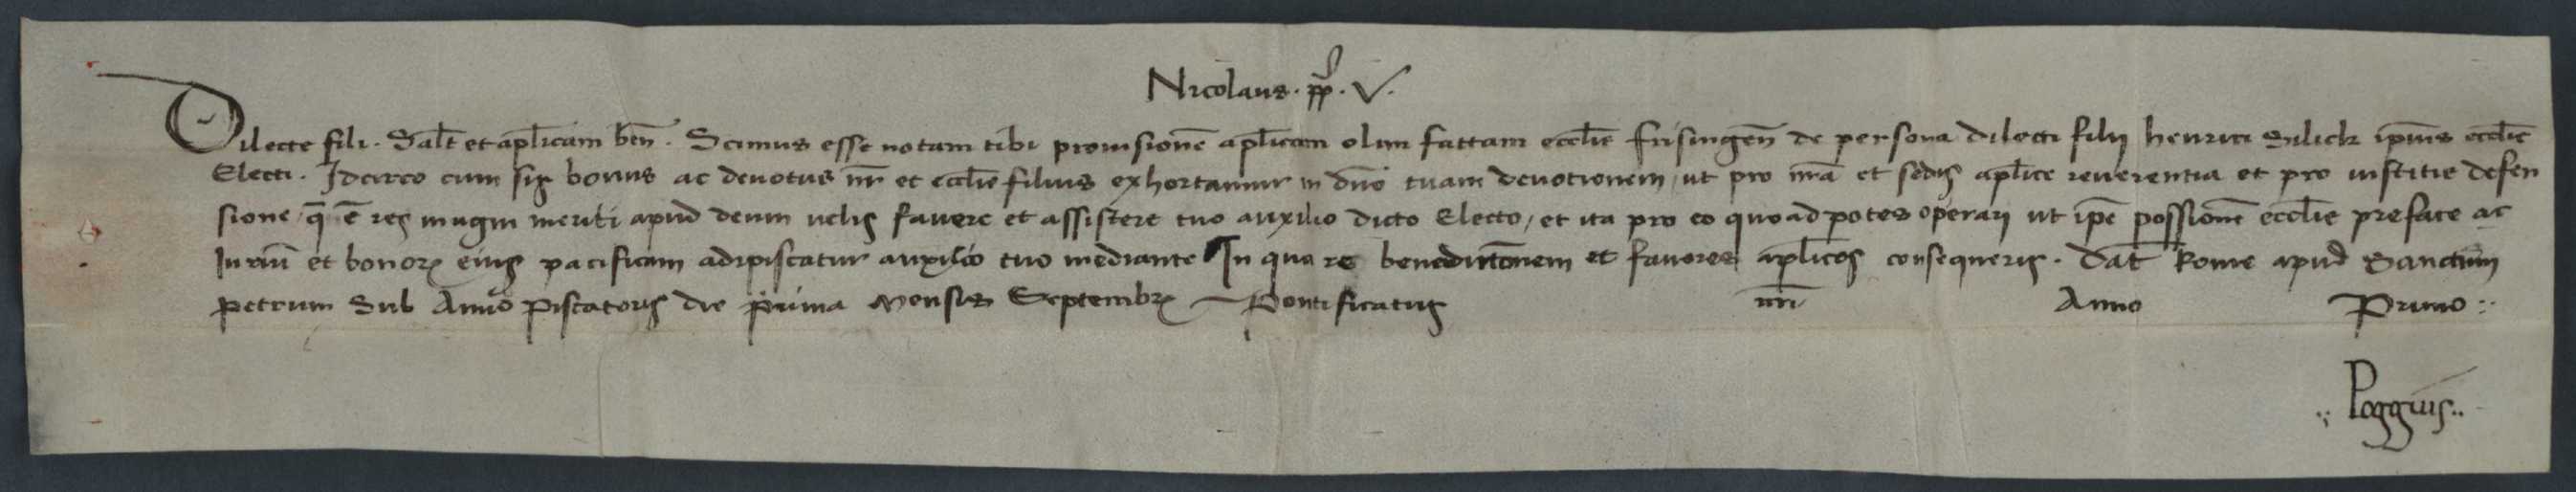 Nicolaus. pp. V.
Dilecte fili. Salt et aplicam ben. Scimus esse notam tibi provisione aplicam olim fattam ecclie frisingen de persona dilecti filij henrici Silick ipius ecclie
Electi. Idcirco cum sis bonus ac devotus nr et ecclie filius exhortamur in dno tuam devotionem, ut pro nra et sedis aplice reverentia et pro iustitie defen
sione, que e res magni meriti apud deum velis favere et assistere tuo auxilio dicto Electo, et ita pro eo quoad potes operari ut ipe possione ecclie prefate ac
Iuriu et bonor eius pacificam adipiscatur auxilio tuo mediante In qua re benedictonem et favores aplicos consequeris. Dat Rome apud Sanctum
petrum Sub Annulo piscatoris die prima Mensis Septembr Pontificatus nri Anno Primo:.
Poggius..